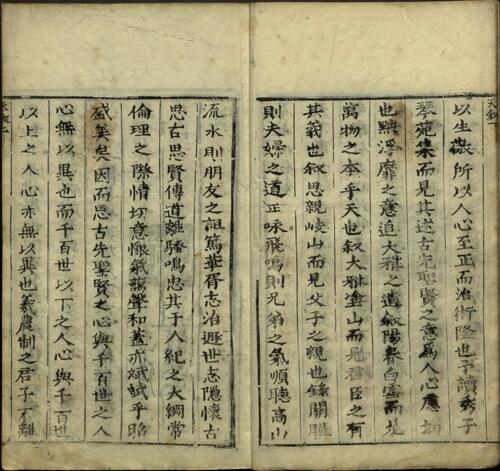 以生敬所以人心至正而治術隆也予讀秀子
琴苑集而見其述古先聖賢之意爲人心慮切
也黜浮靡之意追大雅之遺叙陽春白雲而是
萬物之本乎天也叙大雅塗山而見君臣之有
其義也叙思親岐山而見父子之親也錄關雎
則夫婦之道正咏飛鳴則兄弟之氣順聽高山
流水則朋友之誼篤華胥志治遯世志隱懷古
思古思賢傳道離騷鳴忠其于人紀之大綱常
倫理之際情切意懇氣藹聲和蓋亦斌斌乎昭
盛美矣因而思古先聖賢之心與千百世之人
心無以異也而千百世以下之人心與千百世
以上之人心亦無以異也義農制之君子不離